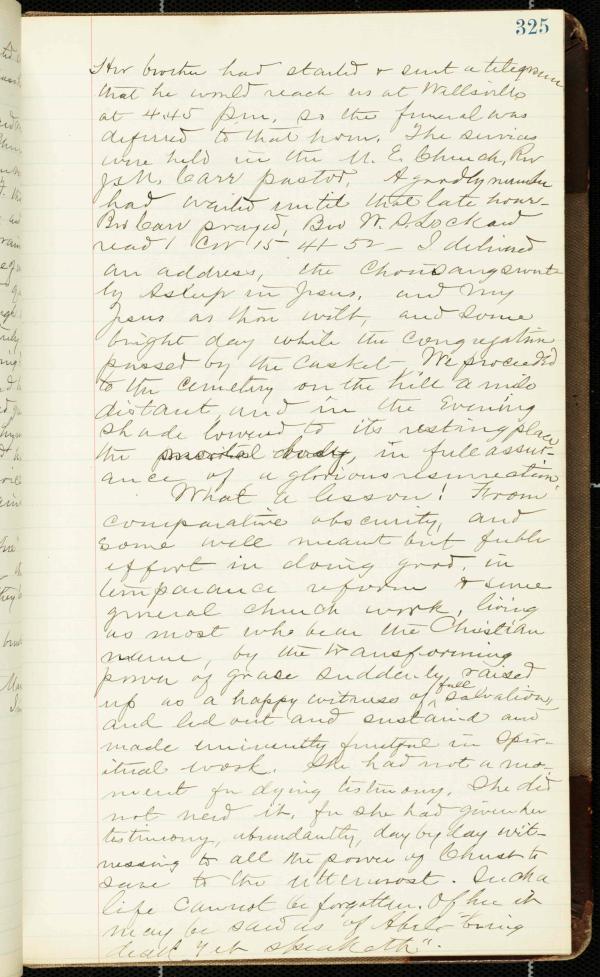 325
Her brother had started & sent a telegram
that he would reach us at Wellsville
at 4.45 pm, so the funeral was
deferred to that hour. The services
were held in the M. E. Church, Rev
J. M. Carr pastor. A goodly number
had waited until that late hour.
Bro Carr prayed, Bro W. B. Lockard
read 1 Cor 15 - 41-52 - I delivered
an address, the Choir sang sweet-
ly Asleep in Jesus, and My
Jesus as thou wilt, and Some
bright day while the congregation
passed by the casket. We proceeded
to the cemetery on the hill a mile
distant, and in the Evening
shade lowered to its resting place
the mortal body, in full assur-
ance of a glorious resurrection.
What a lesson! From
comparative obscurity, and
some well meant but feeble
effort in doing good, in
temparance reform & some
general church work, living
as most who bear the Christian
name, by the transforming
power of grace suddenly raised
up as a happy witness of full salvation,
and led out and sustained and
made eminently fruitful in Spir-
itual work. She had not a mo-
ment for dying testimony. She did
not need it, for she had given her
testimony, abundantly, day by day wit-
nessing to all the power of Christ to
save to the uttermost. Such a
life cannot be forgotten. Of her it
may be said as of Abel "being
dead yet speaketh".